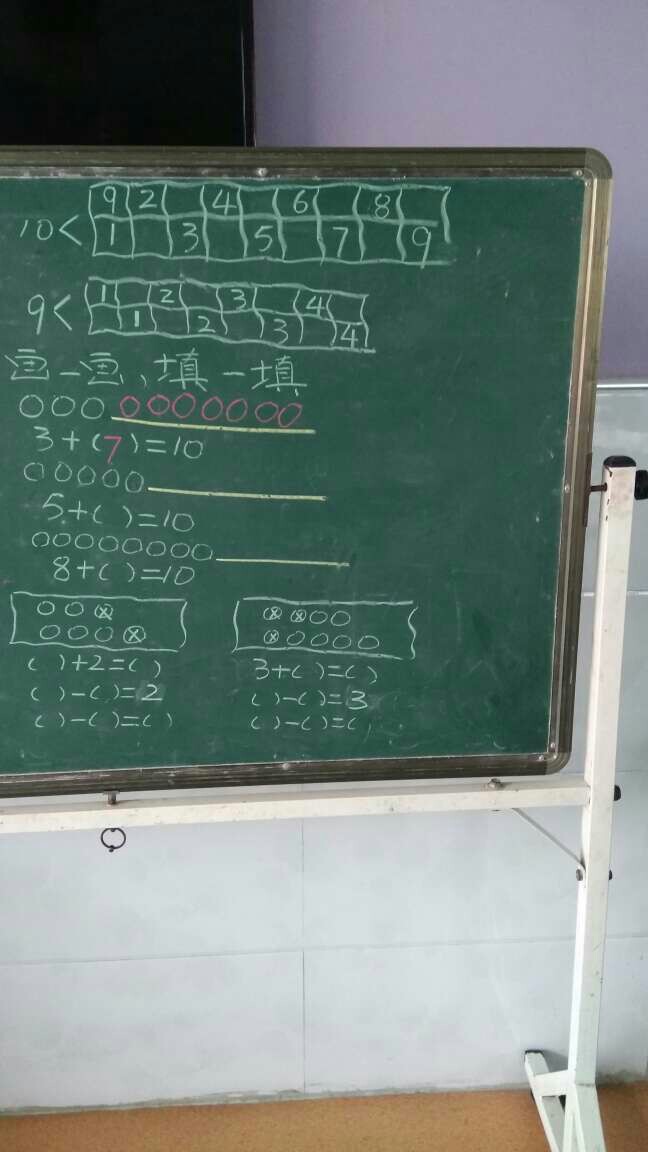 9 2 4 6 8
10< 1 3 5 7 9
1 2 3 4
9< 1 2 3 4
画一画、填一填
3+(7)=10
5+( )=10
8+( )=10
( )+2=( ) 3+( )=( )
( )-( )=2 ( )-( )=3
( )-( )=( ) ( )-( )=(